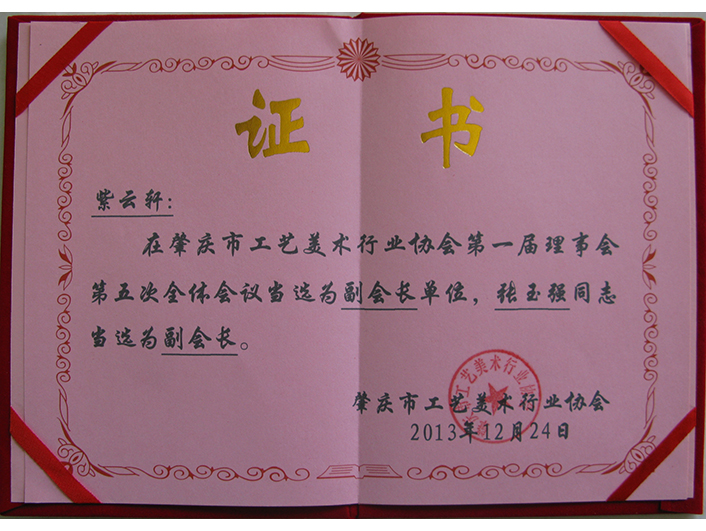 证 书
紫云轩:
在肇庆市工艺美术行业协会第一届理事会
第五次全体会议当选为副会长单位，张玉强同志
当选为副会长。
肇庆市工艺美术行业协会
2013年12月24日